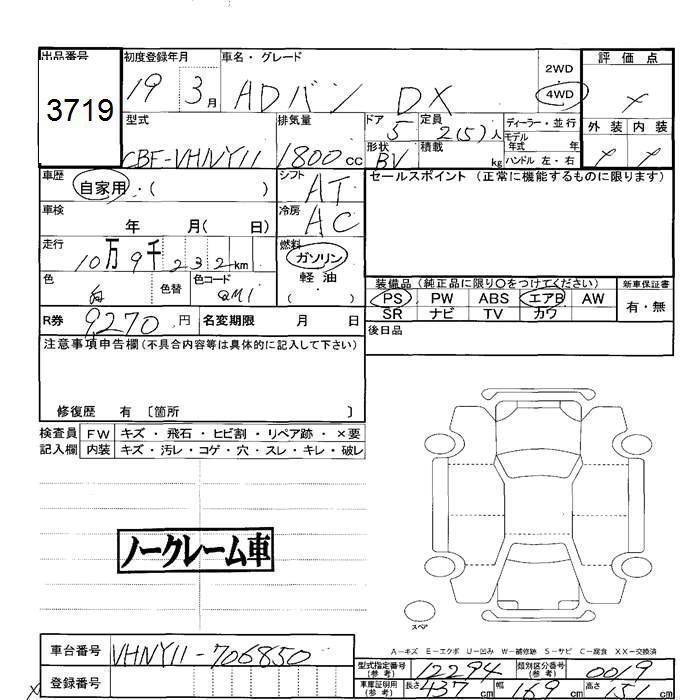 出品番号 3719
初度登録年月 19 3月
車名・グレード ADバン DX
2WD
4WD
評価点 ×
型式 CBF-VHNY11
排気量 1800cc
ドア 5
定員 2(5)人
形状 BV
積載 kg
ディーラー・並行
モデル年式 年
ハンドル 左・右
外装 内装
× ×
車歴 自家用・( )
シフト AT
セールスポイント (正常に機能するものに限ります)
車検 年 月( 日)
冷房 AC
走行 10万9千232km
燃料 ガソリン
軽油
( )
色 白 色替
色コード QM1
装備品(純正品に限り○をつけてください)
新車保証書
PS PW ABS エアB AW
有・無
SR ナビ TV カワ
R券 9,270円
名変期限 月 日
後日品
注意事項申告欄(不具合内容等は具体的に記入して下さい)
修復歴 有 〔箇所 〕
検査員 FW キズ・飛石・ヒビ割・リペア跡・×要
記入欄 内装 キズ・汚レ・コゲ・穴・スレ・キレ・破レ
ノークレーム車
スペア
A−キズ E−エクボ U−凹み W−補修跡 S−サビ C−腐食 XX−交換済
車台番号 VHNY11-706850
登録番号
型式指定番号(参考) 12294
類別区分番号(参考) 0019
車庫証明用(参考) 長さ437cm 幅169cm 高さ151cm